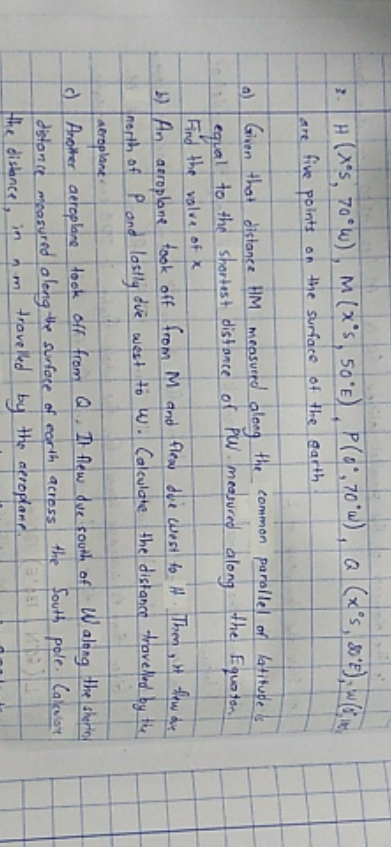 3. H (x°S, 70°W), M (x°S, 50°E), P(0°, 70°W), Q (x°S, 80°E), W
are five points on the surface of the earth.
a) Given that distance HM measured along the common parallel of latitude is
equal to the shortest distance of PW measured along the Equator.
Find the value of x
b) An aeroplane took off from M and flew due west to H. Then, it flew due
north of P and lastly due west to W. Calculate the distance travelled by the
aeroplane.
c) Another aeroplane took off from Q. It flew due south of W along the
distance measured along the surface of earth across the South pole. Calculate
the distance, in n.m travelled by the aeroplane.